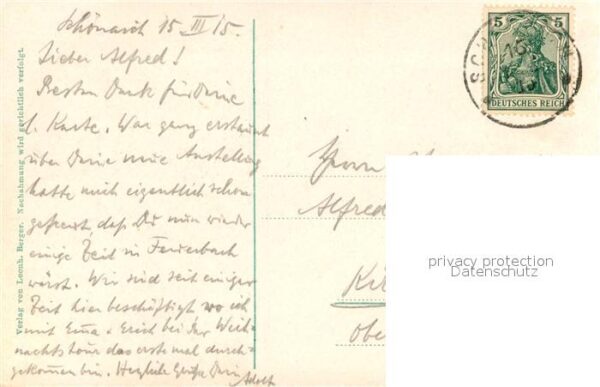 Schönaich 15 III 15.
Lieber Alfred!
Besten Dank für Deine
l. Karte. War ganz erstaunt
über Deine neue Anstellung
hatte mich eigentlich schon
gefreut, daß Du nun wieder
einige Zeit in Feuerbach
wärst. Wir sind seit einiger
Zeit hier beschäftigt wo ich
mit Emma & Erich bei der Weih-
nachtstour das erste mal durch-
gekommen bin. Herzliche Grüße Dein
Adolf
Verlag von Leonh. Berger. Nachahmung wird gerichtlich verfolgt.
5 5
DEUTSCHES REICH
Herrn
Alfred
privacy protection
Datenschutz
Ki
Obe